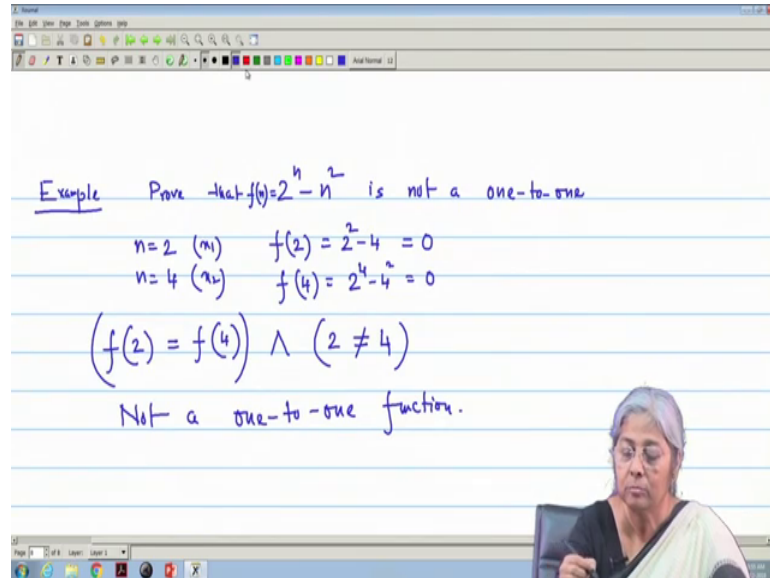 Journal
File Edit View Page Tools Options Help
Arial Normal 12
Example Prove that f(n)=2ⁿ-n² is not a one-to-one
n=2 (x₁) f(2) = 2²-4 = 0
n=4 (x₂) f(4) = 2⁴-4² = 0
(f(2) = f(4)) ∧ (2 ≠ 4)
Not a one-to-one function.
Page of 8 Layer: Layer 1